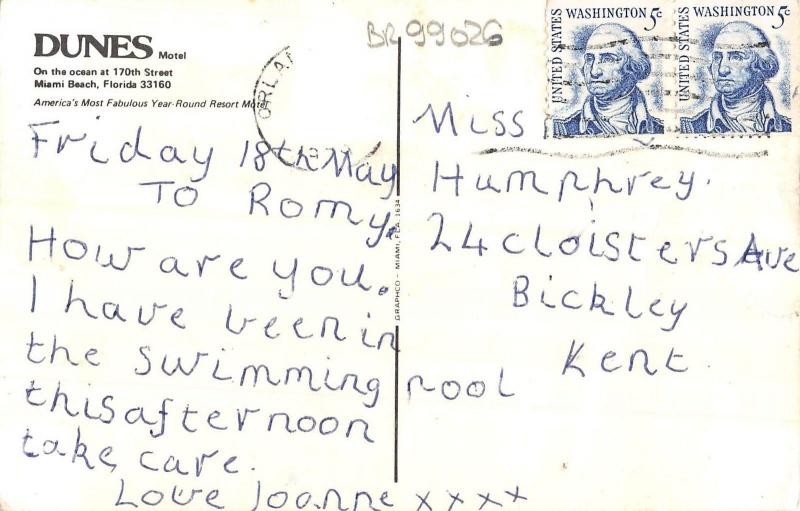 DUNES Motel
On the ocean at 170th Street
Miami Beach, Florida 33160
America's Most Fabulous Year-Round Resort Motel
BR99026
UNITED STATES WASHINGTON 5c
UNITED STATES WASHINGTON 5c
Friday 18th May
TO Romy.
How are you.
I have been in
the swimming pool
this afternoon
take care.
Love Joanne xxxx
GRAPHCO – MIAMI, FLA. 1634
Miss
Humphrey.
24 cloisters Ave
Bickley
Kent.